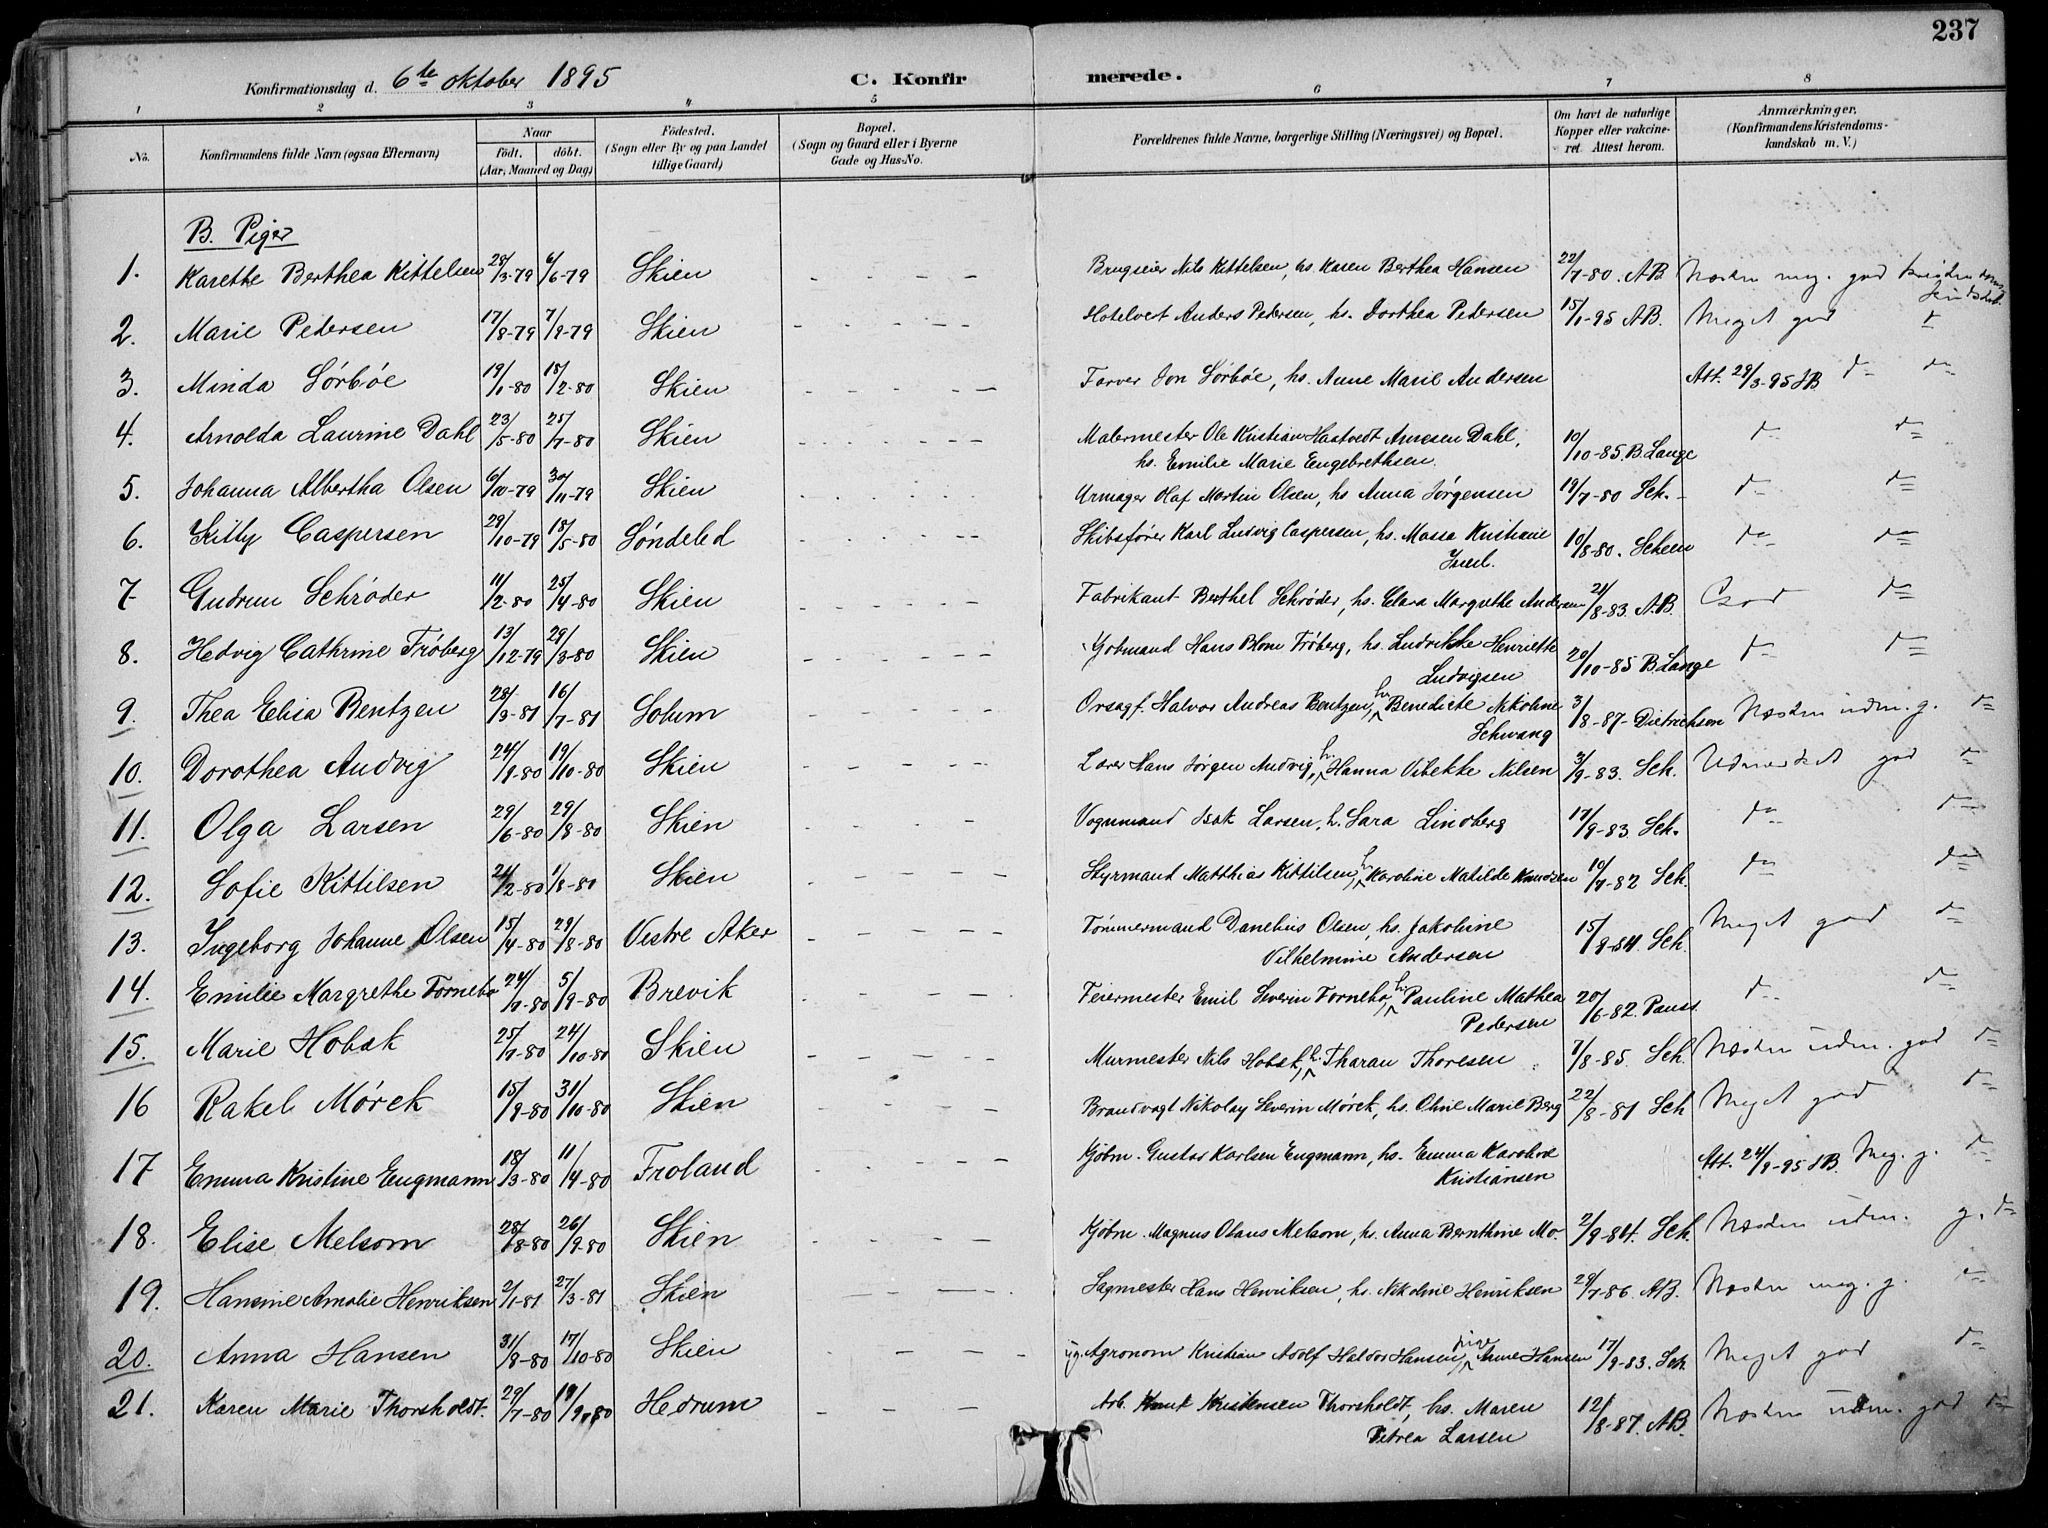 237
Konfirmationsdag d. 6te oktober 1895 C. Konfirmerede.
1 2 3 4 5 6 7 8
No. Konfirmandens fulde Navn (ogsaa Efternavn) Naar födt. döbt. (Aar, Maaned og Dag) Födested. (Sogn eller By og paa Landet tillige Gaard) Bopæl. (Sogn og Gaard eller i Byerne Gade og Hus-No. Forældrenes fulde Navne, borgerlige Stilling (Næringsvei) og Bopæl. Om havt de naturlige Kopper eller vakcineret. Attest herom. Anmærkninger. (Konfirmandens Kristendomskundskab m. V.)
B. Piger
1. Karethe Berthea Kittelsen 28/3-79 6/6-79 Skien Brugseier Nils Kittelsen, hs. Karen Berthea Hansen 22/7-80. AB Næsten meg. god kristendoms
2. Marie Pedersen 17/8-79 7/9-79 Skien Hotelvert Anders Pedersen, hs. Dorthea Pedersen 15/1-95 AB. Meget god
3. Minda Sörböe 19/1-80 15/2-80 Skien Farver Jon Sörböe, hs. Anne Marie Andersen Att. 29/3-95 JB d= d=
4. Arnolda Laurine Dahl 23/5-80 25/7-80 Skien Malermester Ole Kristian Haatvedt Annesen Dahl, 10/10-85. B. Lange d= d=
hs. Emilie Marie Engebrethsen.
5. Johanna Albertha Olsen 6/10-79 30/11-79 Skien Urmager Olaf Martin Olsen, hs Anna Jørgensen 19/7-80 Sch. d= d=
6. Kitty Caspersen 29/10-79 18/5-80 Söndeled Skibsfører Karl Ludvig Caspersen, hs. Massa Kristiane 10/8-80. Scheen d= d=
Juel.
7 Gudrun Schrøder 11/2-80 25/4-80 Skien Fabrikant Berthel Schrøder, hs. Clara Margrethe Andersen 21/8-83 A.B. God d=
8. Hedvig Cathrine Fröberg 13/12-79 29/3-80 Skien Hans Blom Fröberg, hs. Ludvikke Henriette 20/10-85 B. Lange d= d=
Ludvigsen
9. Thea Elisa Bentzen 28/3-81 16/7-81 Solum Orsagf. Halvor Andreas Bentzen, hs Benedicte Nikoline 3/8-87- Dietrichson Næsten udm. g. d=
Schwang
10. Dorothea Andvig 24/9-80 19/10-80 Skien Lærer Hans Jörgen Andvig, hs. Hanna Vibekke Nilsen 3/9-83. Sch. Udmærket god d=
11. Olga Larsen 29/6-80 29/8-80 Skien Vognmand Isak Larsen, h. Sara Lindberg 17/9-83. Sch. d= d=
12. Sofie Kittilsen 24/2-80 1/8-80 Skien Styrmand Matthias Kittilsen, hs Karoline Matilde Knudsen 10/7-82 Sch. d= d=
13. Ingeborg Johanne Olsen 15/4-80 29/8-80 Vestre Aker Tömmermand Danelius Olsen, hs. Jakobine 15/9-84. Sch. Meget god d=
Vilhelmine Andersen
14. Emilie Margrethe Tornebo 24/9-80 5/9-80 Brevik Feiermester Emil Severin Tornebo, hs Pauline Mathea 20/6-82. Pauss. d= d=
Pedersen
15. Marie Hobæk 25/7-80 24/10-80 Skien Murmester Nils Hobæk, h. Tharan Thoresen 7/8-85. Sch. Næsten udm. god d=
16 Rakel Mörck 15/9-80 31/10-80 Skien Brandvagt Nikolay Severin Mörck, hs. Oline Marie Berg 22/8-81 Sch Meget god d=
17 Emma Kristine Engmann 18/3-80 11/4-80 Froland Kjöbm. Gustav Karlsen Engmann, hs. Emma Karoline Att. 24/9-95 JB. Meg. g. d=
Kristiansen
18. Elise Melsom 28/8-80 26/9-80 Skien Kjöbm. Magnus Olaus Melsom, hs. Anna Bernthine Mo. 2/9-84. Sch. Næsten udm. g. d=
19. Hansine Amalie Henriksen 2/1-81 27/3-81 Skien Sagmester Hans Henriksen, hs. Nikoline Henriksen 29/7-86. AB. Næsten meg. g. d=
20. Anna Hansen 31/8-80 17/10-80 Skien ug. Agronom Kristian Adolf Haldor Hansen, pige Anne Hansen 17/9-83. Sch Meget god d=
21. Karen Marie Thorsholdt. 29/7-80 19/9-80 Hedrum Arb. Knut Kristensen Thorsholdt, hs. Maren 12/8-87. AB. Næsten udm. god d=
Petrea Larsen